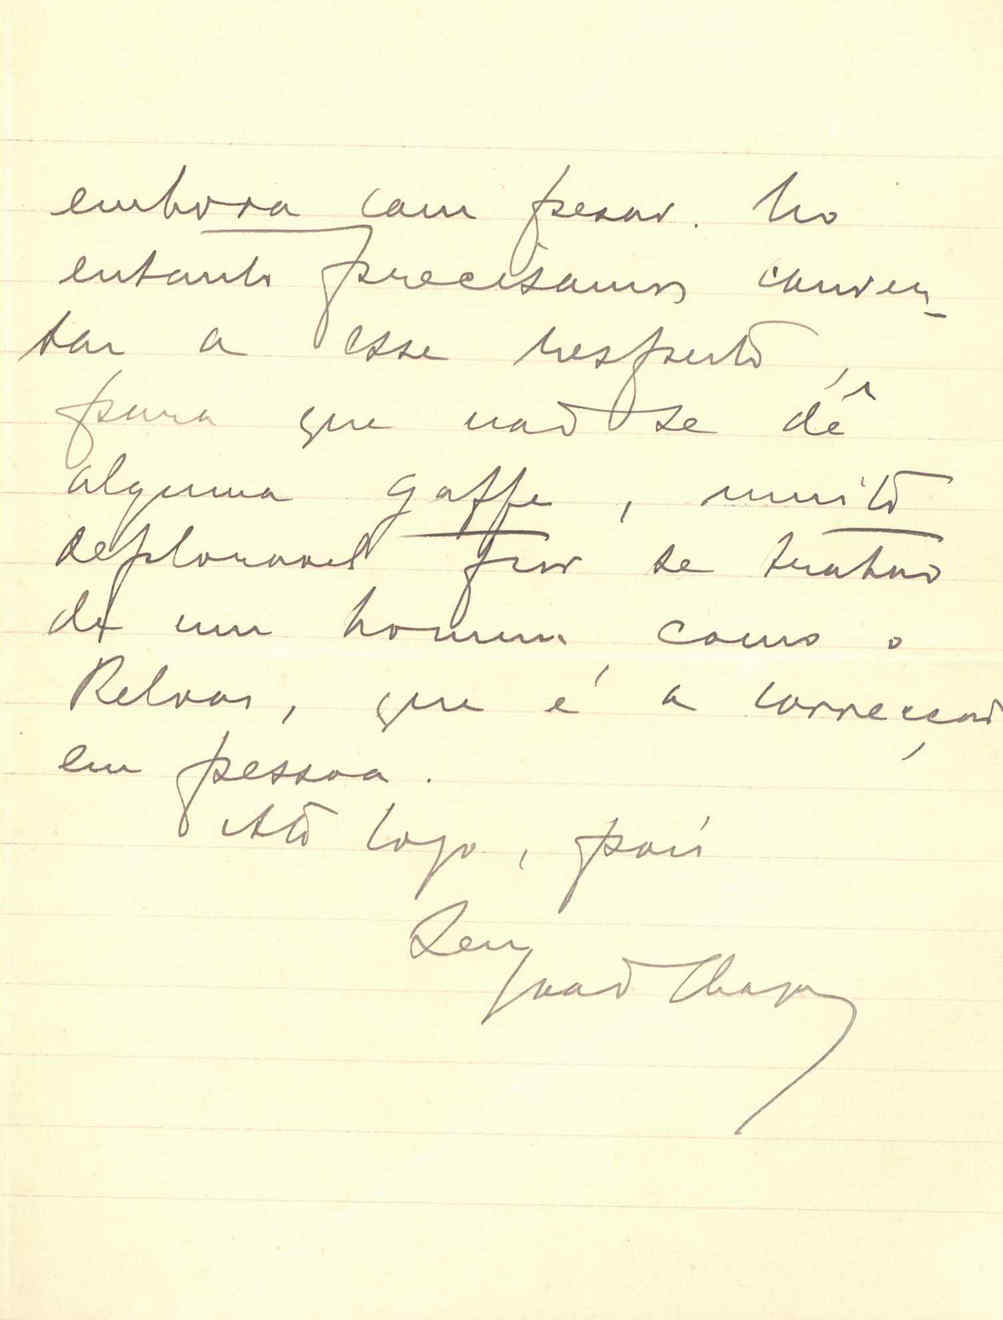 embora com pesar. No
entanto precisamos conver-
sar a esse respeito,
para que não se dê
alguma gaffe, muito
deploravel por se tratar
de um homem como o
Relvas, que é a correcção
em pessoa.
Até logo, pois
Seu
João Chagas